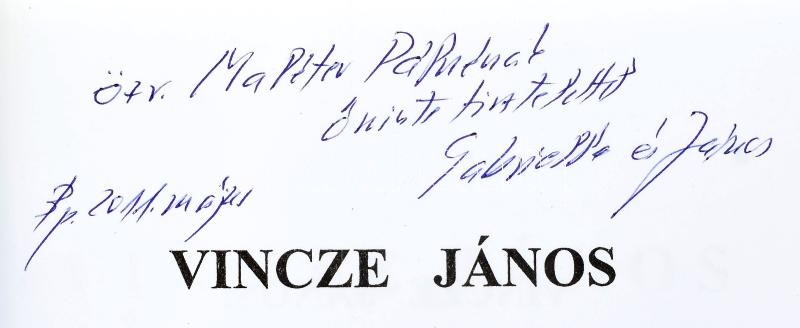 Özv. Maléter Pálnénak
őszinte tisztelettel
Gabriella és János
Bp. 2011. május
VINCZE JÁNOS